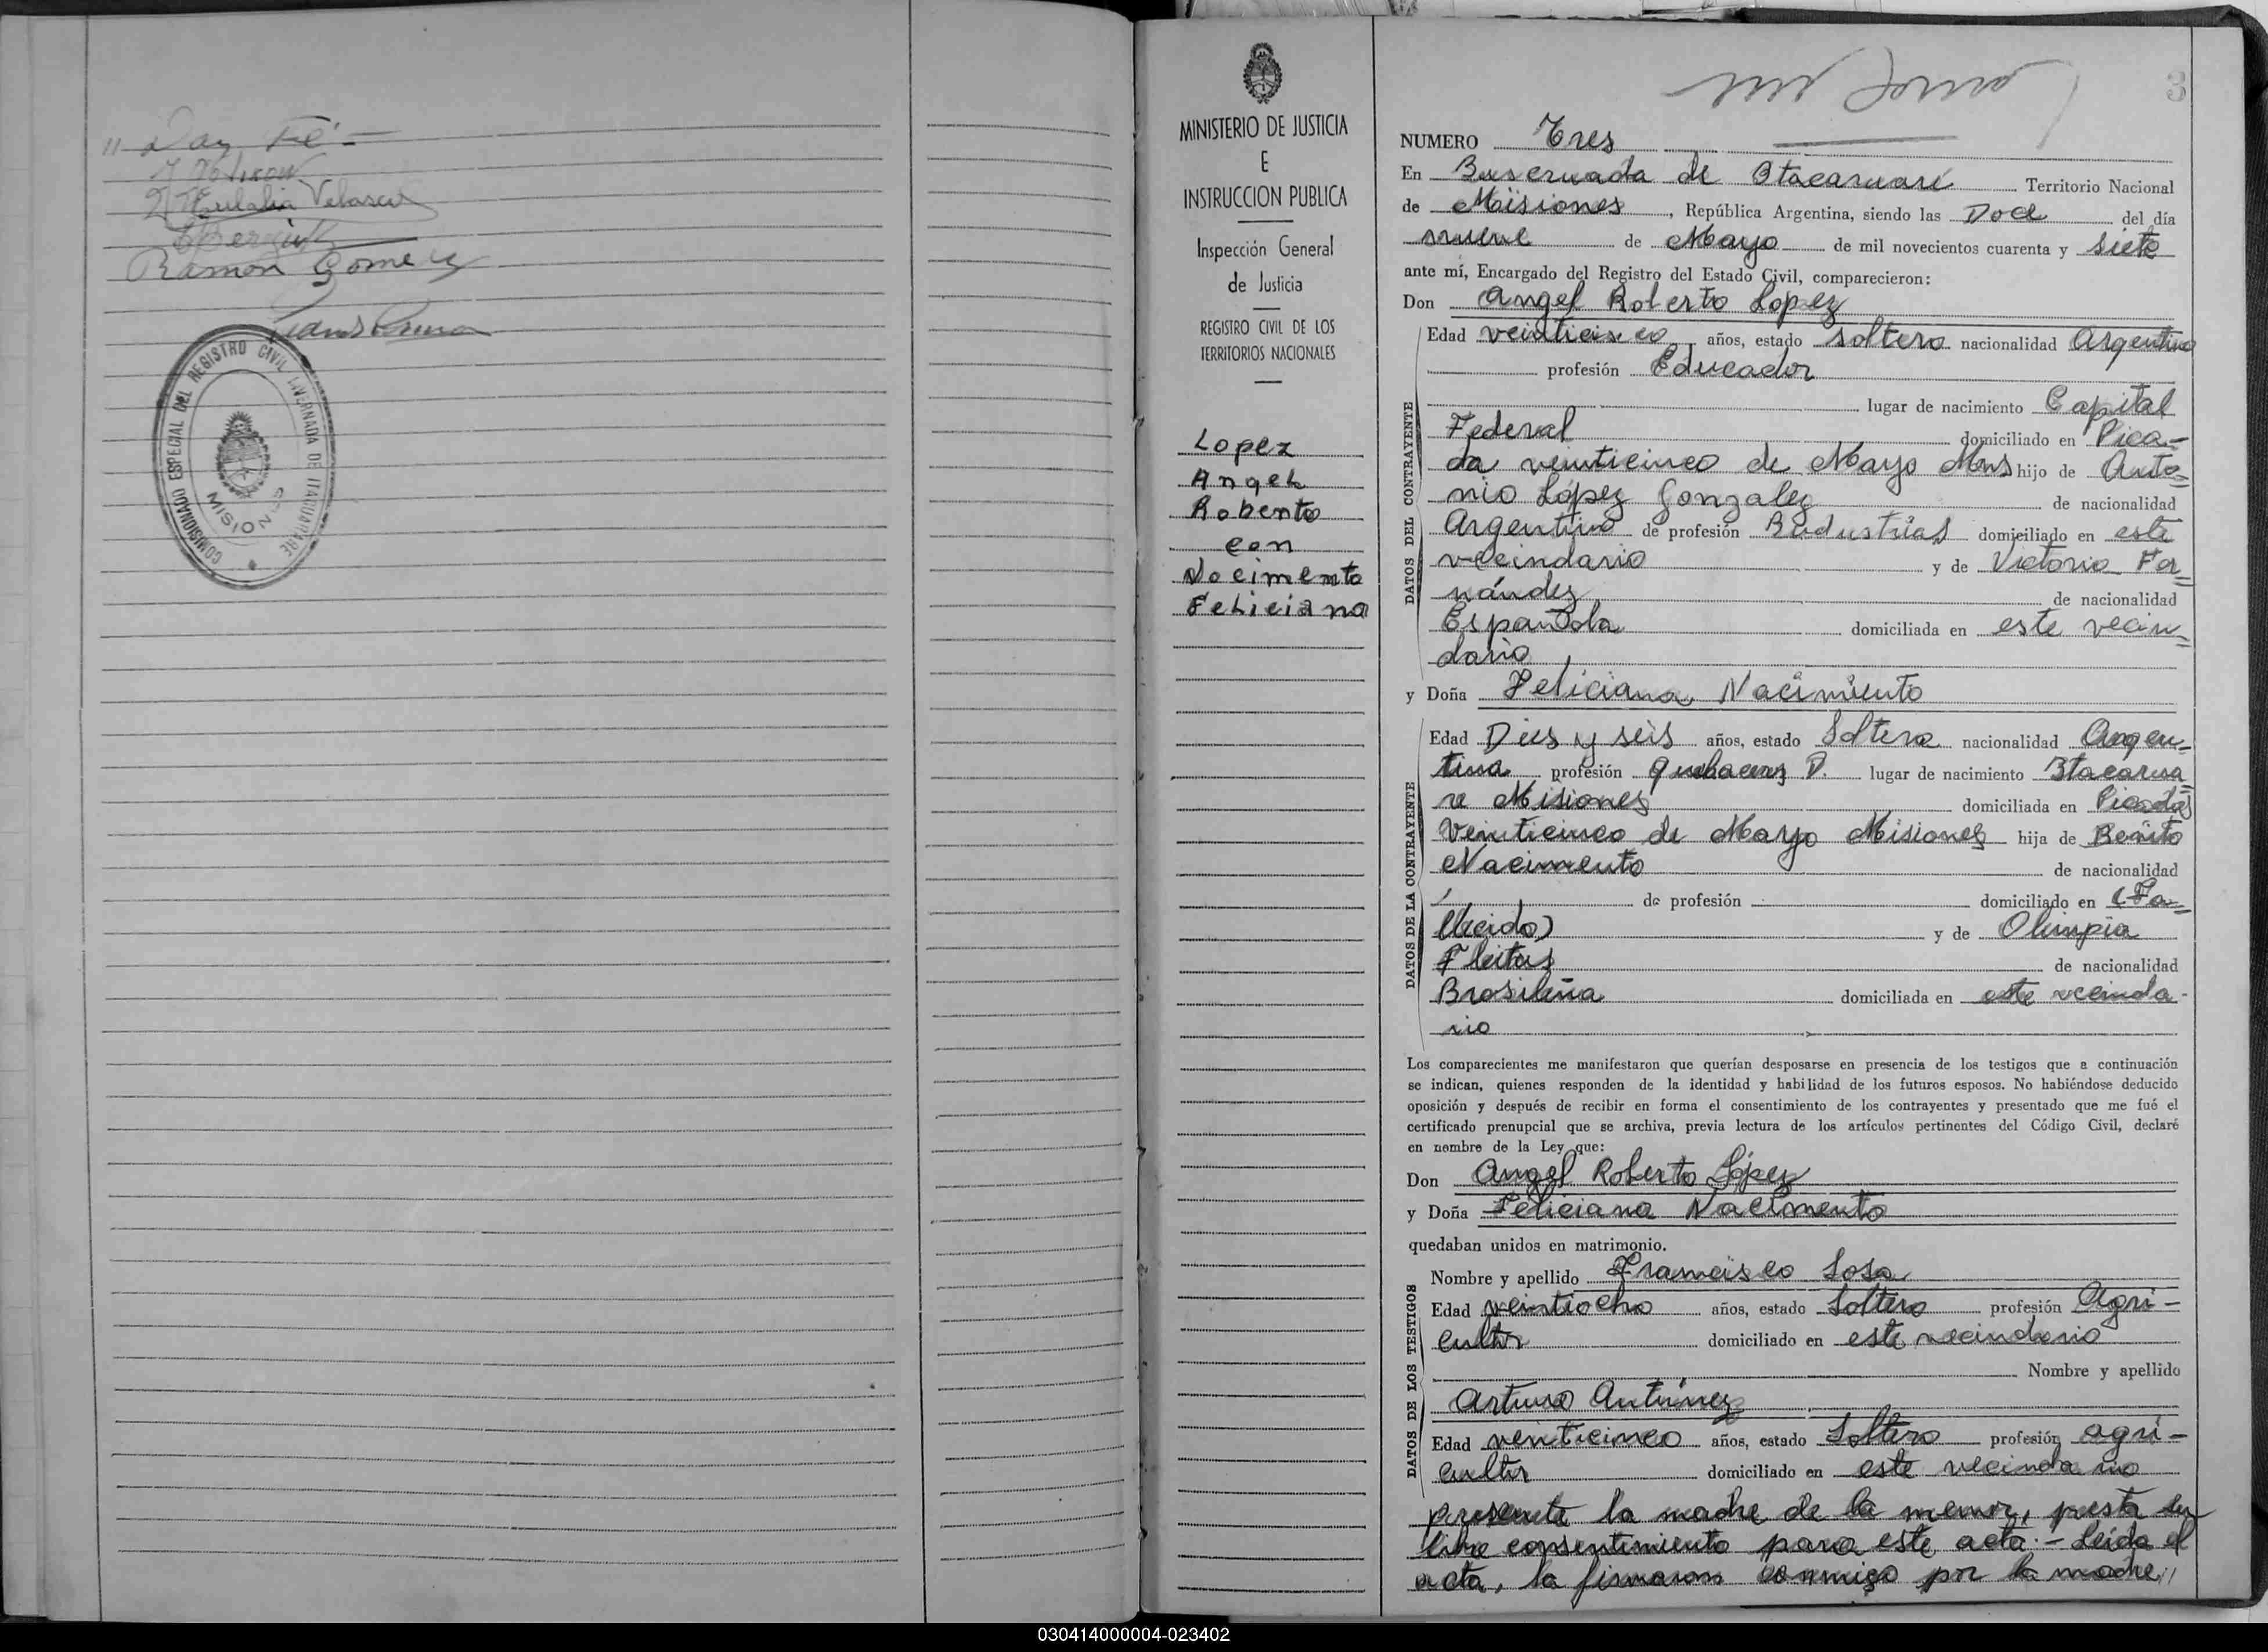 " Doy Fé =
Eulalia Velasco
Ramon Gomez
COMISIONADO ESPECIAL DEL REGISTRO CIVIL INVERNADA DE ITACUARARE
MISIONES
MINISTERIO DE JUSTICIA
E
INSTRUCCION PUBLICA
Inspección General
de Justicia
REGISTRO CIVIL DE LOS
TERRITORIOS NACIONALES
Lopez
Angel
Roberto
con
Nocimento
Feliciana
3
NUMERO Tres
En Invernada de Itacaruaré Territorio Nacional
de Misiones, República Argentina, siendo las Doce del día
nueve de Mayo de mil novecientos cuarenta y siete
ante mí, Encargado del Registro del Estado Civil, comparecieron:
Don Angel Roberto Lopez
DATOS DEL CONTRAYENTE
Edad veinticinco años, estado soltero nacionalidad Argentino
profesión Educador
lugar de nacimiento Capital
Federal domiciliado en Pica-
da veinticinco de Mayo Mns hijo de Anto=
nio López Gonzalez de nacionalidad
Argentino de profesión Industrial domiciliado en este
vecindario y de Victoria Fer=
nández de nacionalidad
Española domiciliada en este vecin=
dario
y Doña Feliciana Nacimiento
DATOS DE LA CONTRAYENTE
Edad Dies y seis años, estado Soltera nacionalidad Argen=
tina profesión Quehaceres D. lugar de nacimiento Itacarua=
re Misiones domiciliada en Picada
Veinticinco de Mayo Misiones hija de Benito
Nacimento de nacionalidad
de profesión domiciliado en (Fa=
llecido) y de Olimpia
Fleitas de nacionalidad
Brasileña domiciliada en este vecinda-
rio
Los comparecientes me manifestaron que querían desposarse en presencia de los testigos que a continuación
se indican, quienes responden de la identidad y habilidad de los futuros esposos. No habiéndose deducido
oposición y después de recibir en forma el consentimiento de los contrayentes y presentado que me fué el
certificado prenupcial que se archiva, previa lectura de los artículos pertinentes del Código Civil, declaré
en nombre de la Ley que:
Don Angel Roberto López
y Doña Feliciana Nacimento
quedaban unidos en matrimonio.
DATOS DE LOS TESTIGOS
Nombre y apellido Francisco Sosa
Edad veintiocho años, estado Soltero profesión Agri-
cultor domiciliado en este vecindario
Nombre y apellido
Arturo Antúnez
Edad venticinco años, estado Soltero profesión agri-
cultor domiciliado en este vecindario
presente la madre de la menor, presta su
libre consentimiento para este acta.- Leída el
acta, la firmaron conmigo por la madre //
030414000004-023402